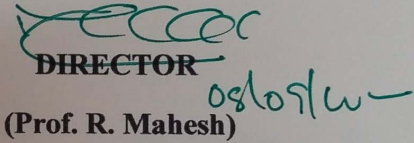 DIRECTOR
(Prof. R. Mahesh)